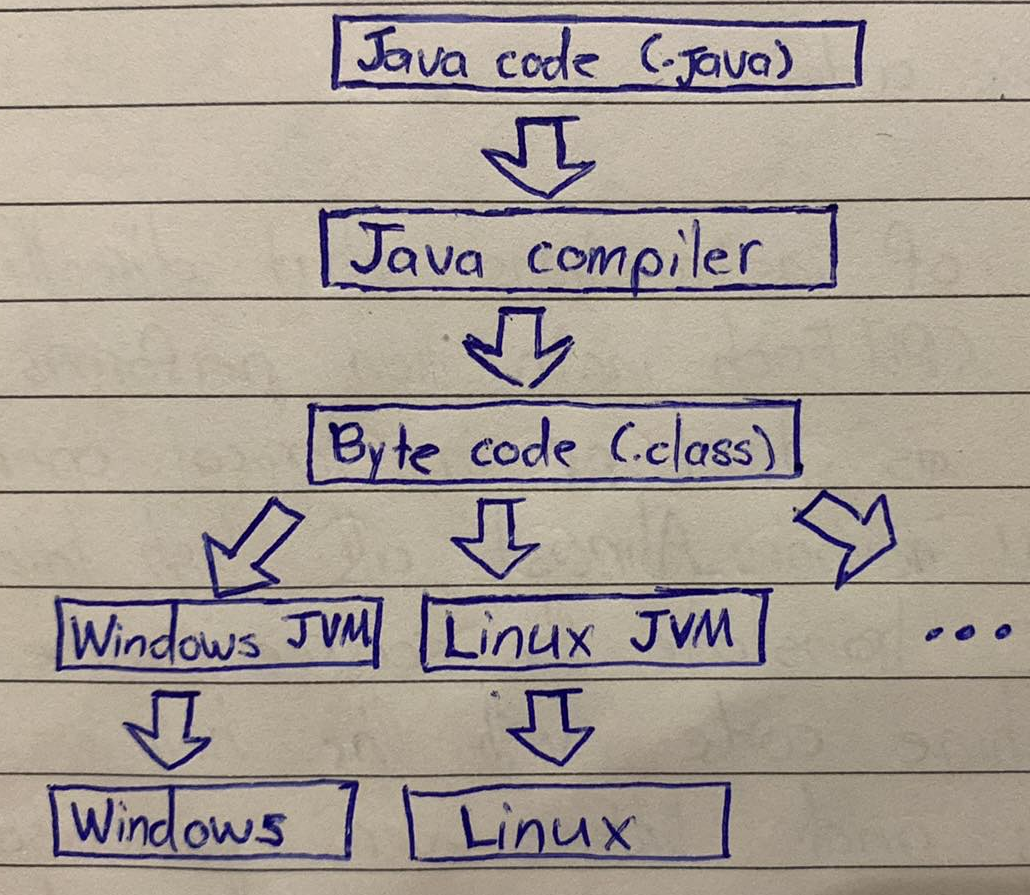 Java code (.java)
Java compiler
Byte code (.class)
Windows JVM Linux JVM ...
Windows Linux